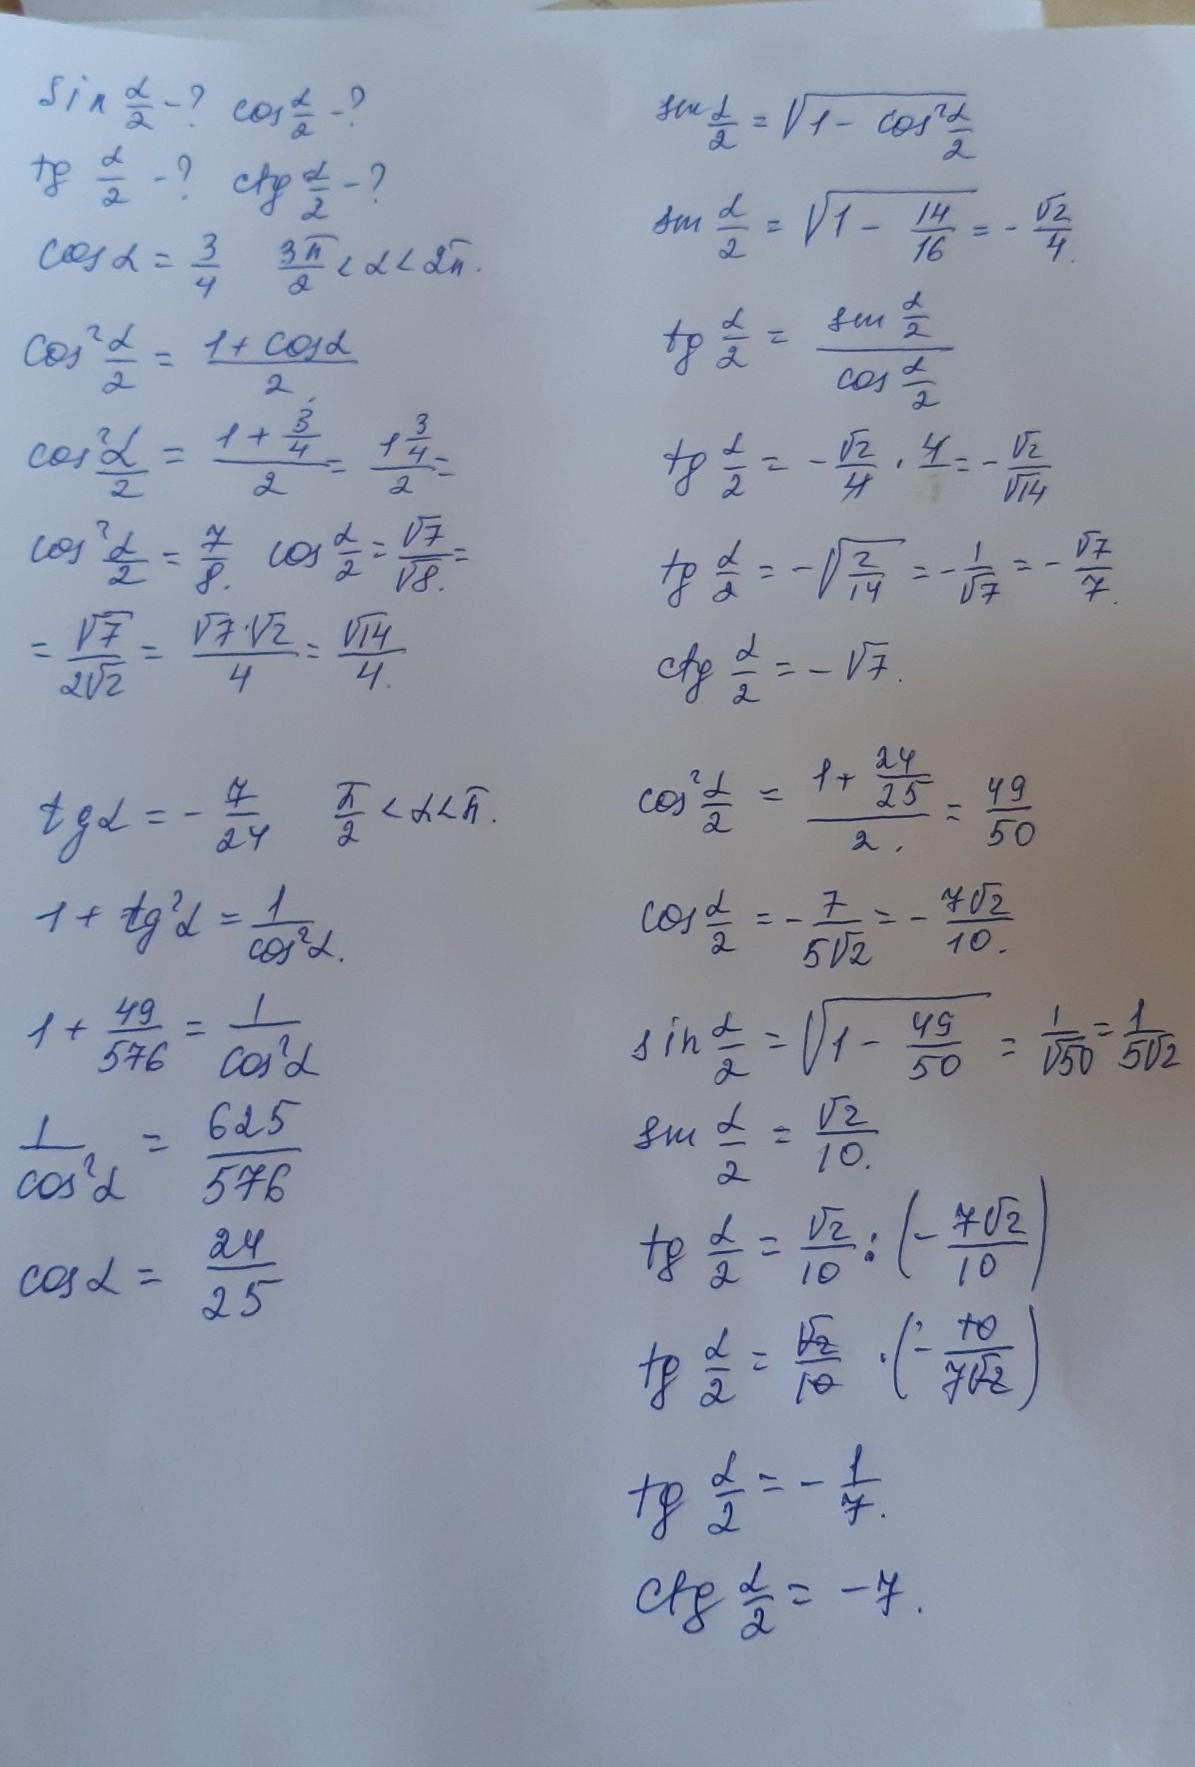 sin α/2 - ? cos α/2 - ?
tg α/2 - ? ctg α/2 - ?
cos α = 3/4 3π/2 < α < 2π.
cos² α/2 = (1 + cos α)/2
cos² α/2 = (1 + 3/4)/2 = (1 3/4)/2 =
cos² α/2 = 7/8. cos α/2 = √7/√8. =
= √7/(2√2) = (√7·√2)/4 = √14/4.
tg α = - 7/24 π/2 < α < π.
1 + tg² α = 1/cos² α.
1 + 49/576 = 1/cos² α
1/cos² α = 625/576
cos α = 24/25
sin α/2 = √(1 - cos² α/2)
sin α/2 = √(1 - 14/16) = - √2/4.
tg α/2 = (sin α/2)/(cos α/2)
tg α/2 = - √2/4 · 4 = - √2/√14
tg α/2 = - √(2/14) = - 1/√7 = - √7/7.
ctg α/2 = - √7.
cos² α/2 = (1 + 24/25)/2. = 49/50
cos α/2 = - 7/(5√2) = - 7√2/10.
sin α/2 = √(1 - 49/50) = 1/√50 = 1/(5√2)
sin α/2 = √2/10.
tg α/2 = √2/10 : (- 7√2/10)
tg α/2 = √2/10 · (- 10/(7√2))
tg α/2 = - 1/7.
ctg α/2 = - 7.